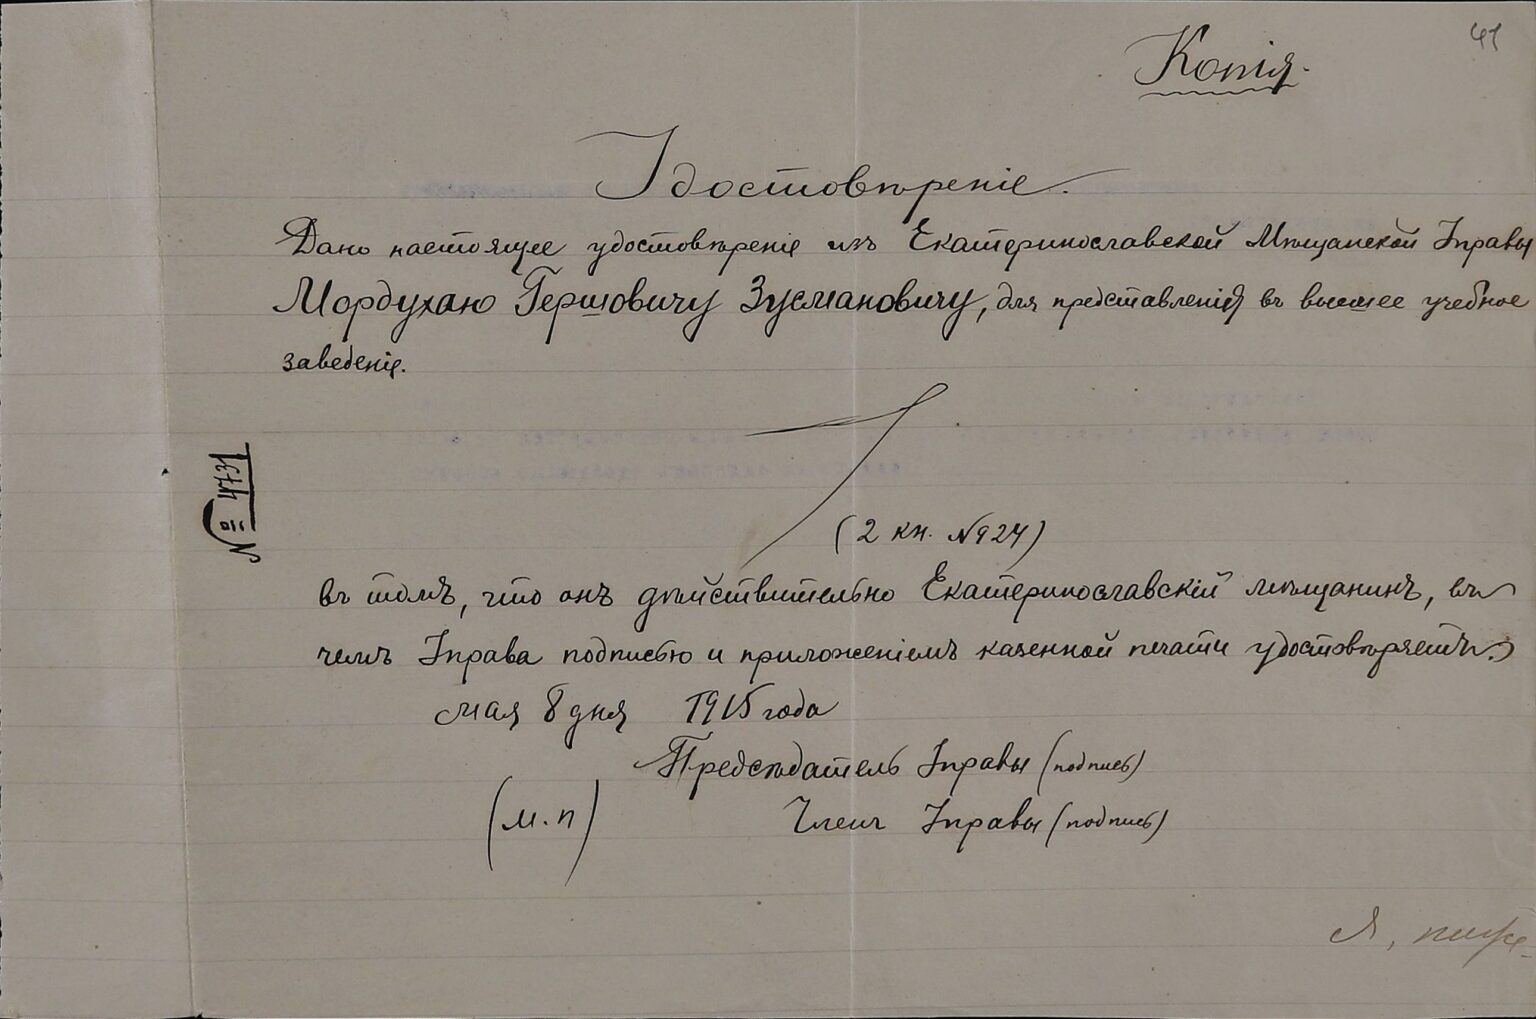 41
Копія.
Удостовѣреніе.
Дано настоящее удостовѣреніе изъ Екатеринославской Мѣщанской Управы
Мордухаю Гершовичу Зусмановичу, для представленія въ высшее учебное
заведеніе.
№ 4731
(2 кн. №924)
въ томъ, что онъ дѣйствительно Екатеринославскій мѣщанинъ, въ
чемъ Управа подписью и приложеніемъ казенной печати удостовѣряетъ.
мая 8 дня 1915 года
Предсѣдатель Управы (подпись)
(М.П) Членъ Управы (подпись)
Я, ниже-